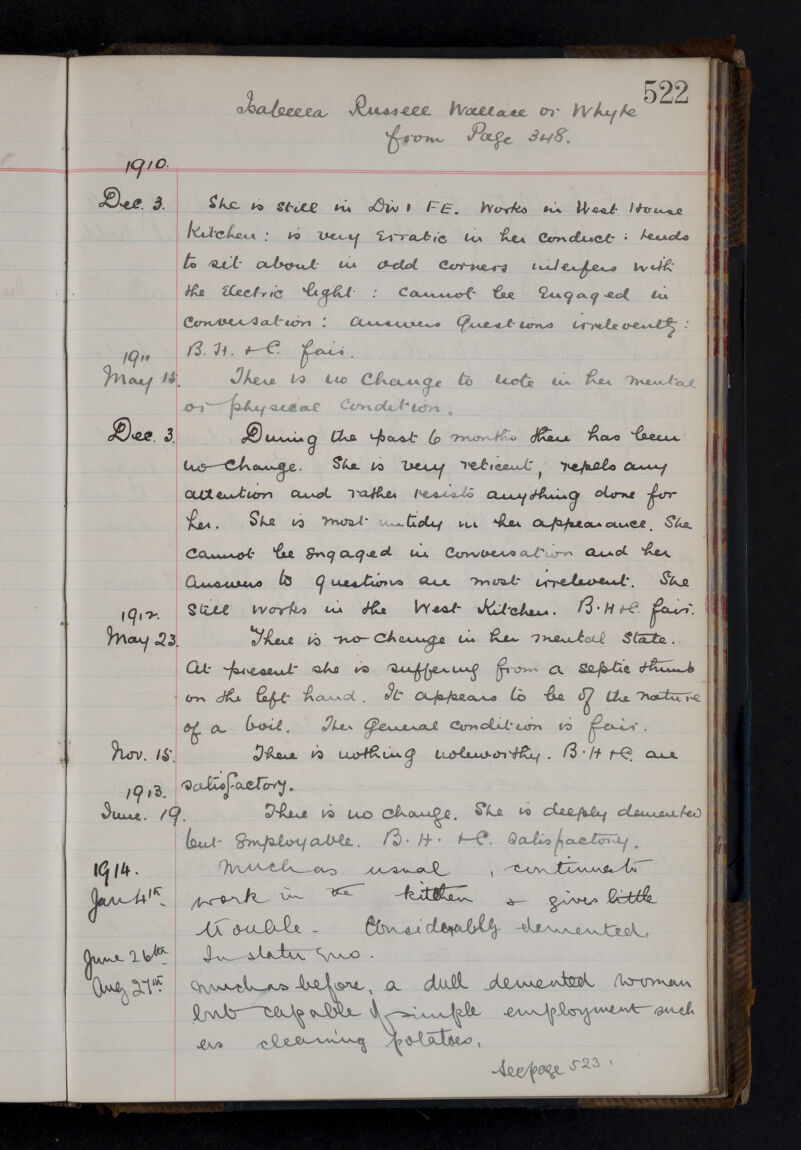 522
Isabella Russell Wallace or Whyte
from Page 348.
1910.
Dec. 3. She is still in Div 1 F.E. Works in West House
Kitchen: is very erratic in her conduct: tends
to sit about in odd corners interfers with
the Electric light: cannot be Engaged in
conversation: answers Questions irrelevently:
B. H. & C. fair.
1911
May 15. There is no Change to note in her mental
or physical condition.
Dec. 3. During the past 6 months there has been
no change. She is very reticent, repels any
attention and rather resists anything done for
her. She is most untidy in her appearance. She
cannot be engaged in conversation and her
answers to questions are most irrelevent. She
still works in the West Kitchen. B.H&C. fair.
1912.
May 23. There is no change in her mental State.
At present she is suffering from a septic thumb
on the left hand. It appears to be of the nature
of a boil. Her General condition is fair.
Nov. 15. There is nothing noteworthy. B.H&C. are
satisfactory.
1913.
June. 19. There is no change. She is deeply demented
but employable. B.H. &C. satisfactory.
1914. Much as usual, continues to
Jan 4th. work in the kitchen & gives little
trouble - Considerably demented.
June 26th In statu quo.
Aug 27th. Much as before, a dull demented woman
but capable of simple employment such
as cleaning potatoes.
See page 523.